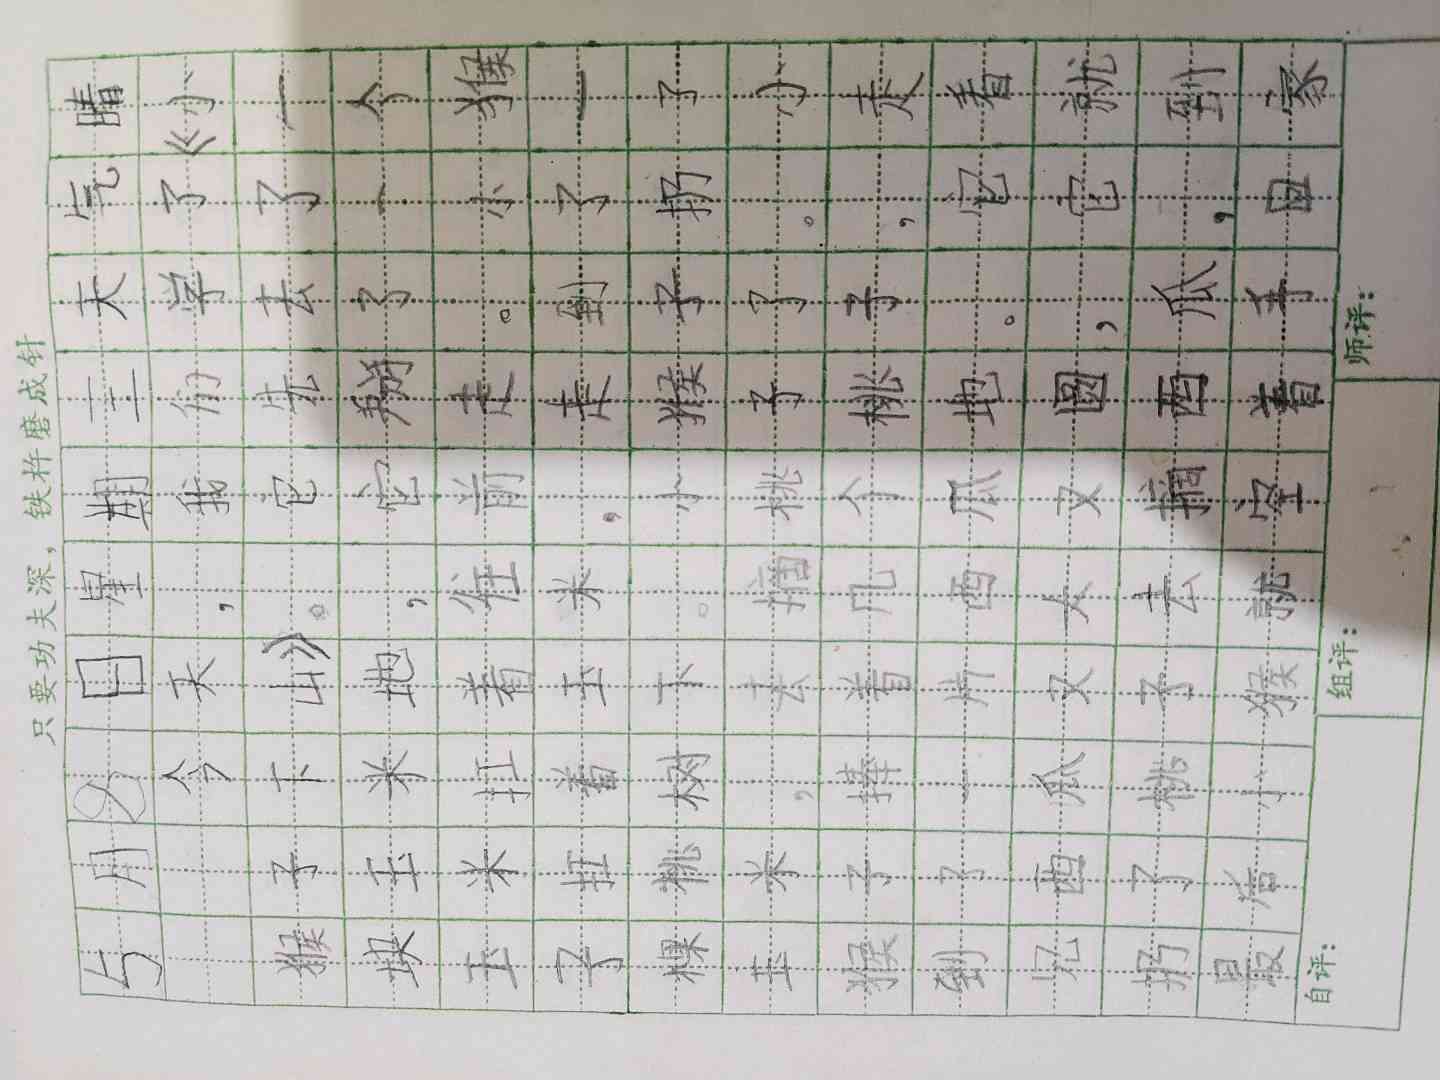 只要功夫深，铁杵磨成针
5月2日星期三天气晴
今天，我们学了《小
猴子下山》。它先去了一
块玉米地，它掰了一个
玉米扛着往前走。小猴
子扛着玉米，走到了一
棵桃树下。小猴子扔了
玉米，去摘桃子了。小
猴子捧着几个桃子，走
到了一片西瓜地。它看
见西瓜又大又圆，它就
扔了桃子去摘西瓜，到
最后小猴就空着手回家
自评： 组评： 师评：